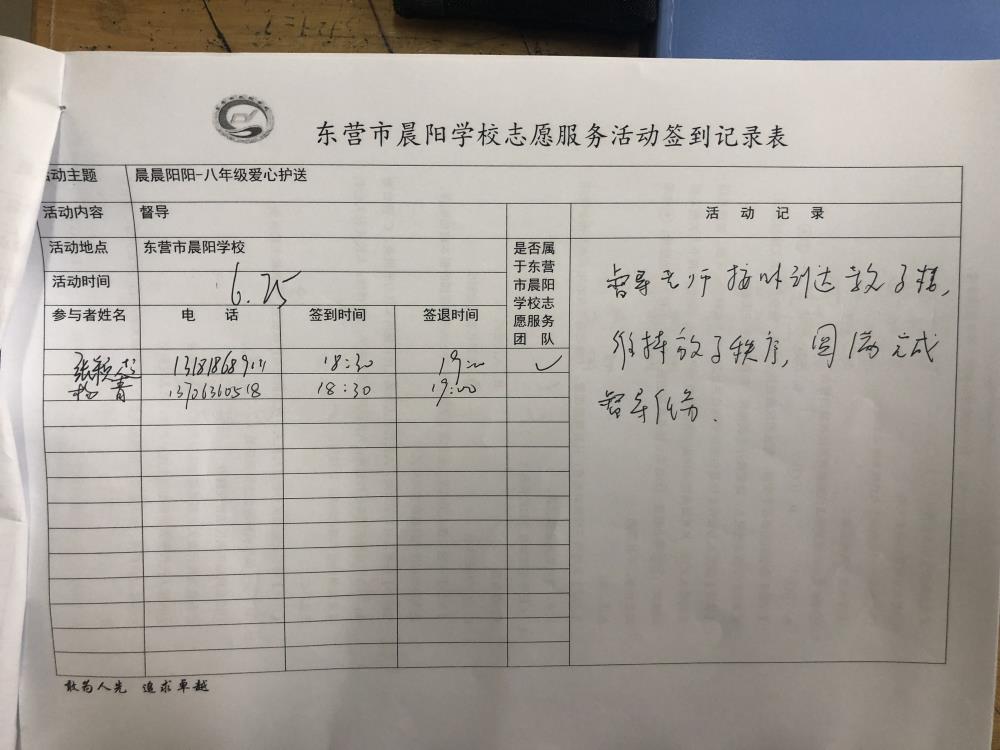 东营市晨阳学校志愿服务活动签到记录表
活动主题 晨晨阳阳-八年级爱心护送
活动内容 督导 活动记录
活动地点 东营市晨阳学校
活动时间 6.25
是否属于东营市晨阳学校志愿服务团队
参与者姓名 电话 签到时间 签退时间
18:30 19:00 ✓
杨青 13706360518 18:30 19:00
督导老师按时到达放学
维持放学秩序,圆满完成
督导任务.
敢为人先 追求卓越